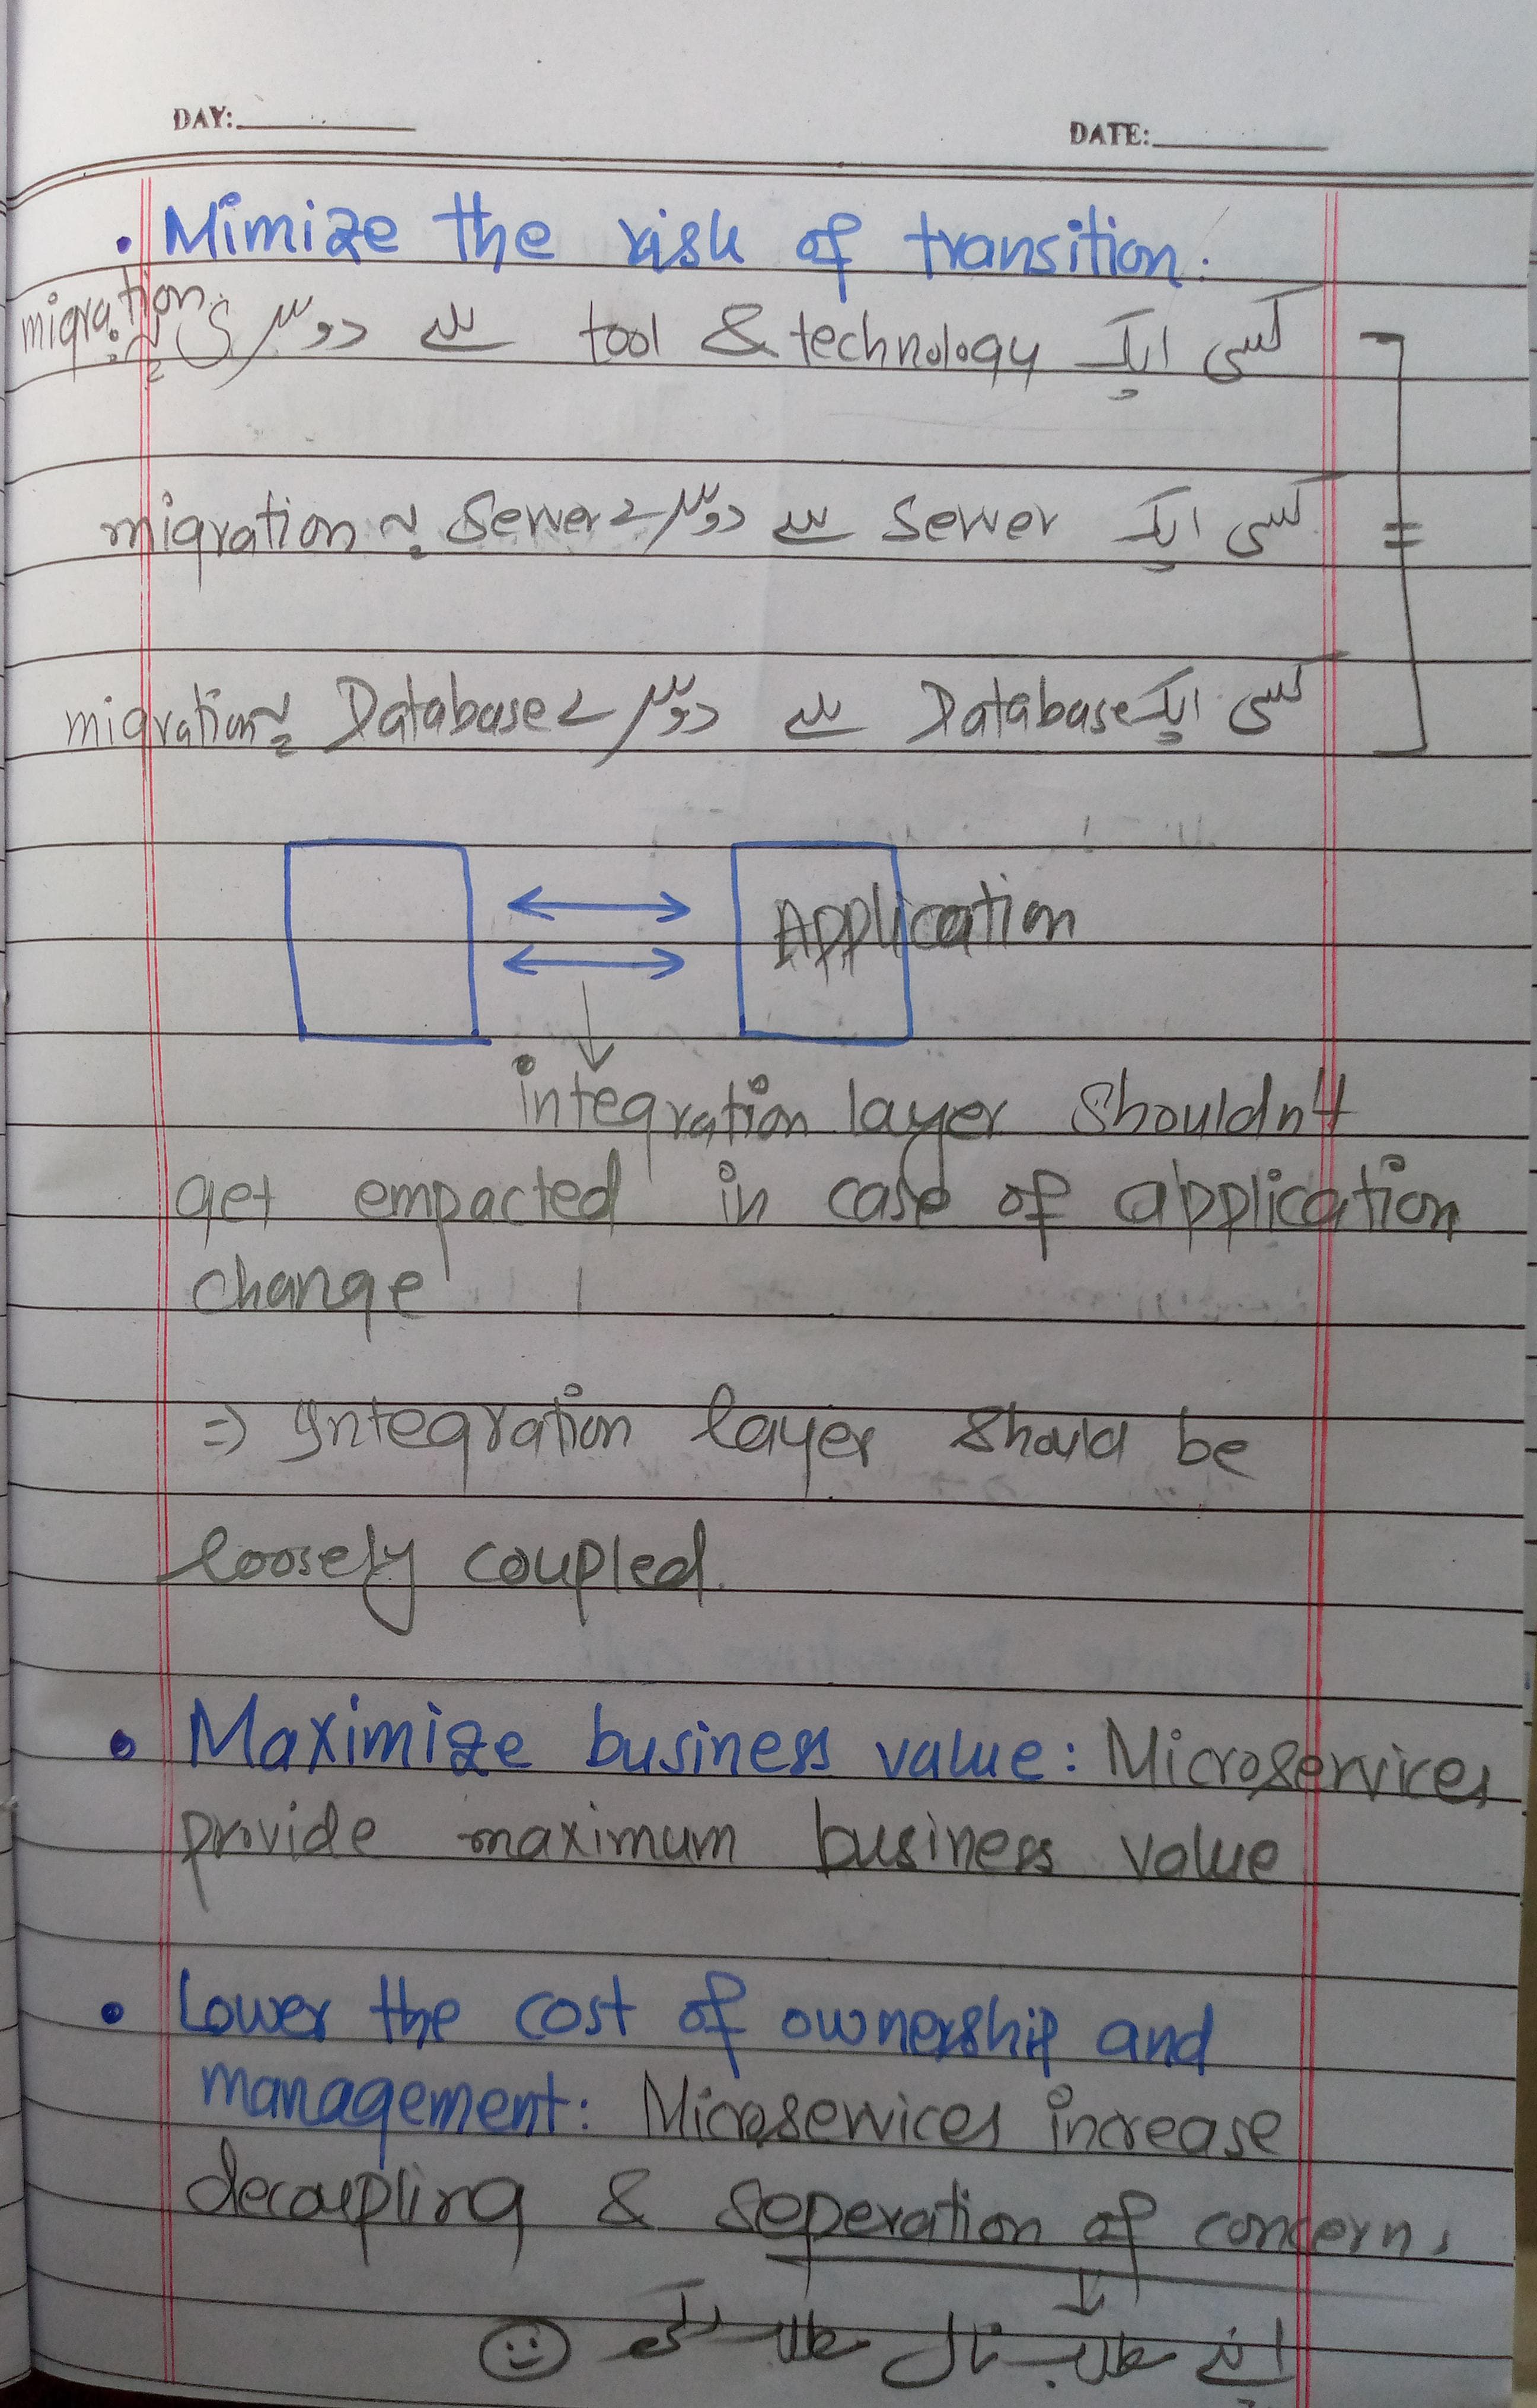 DAY: DATE:
• Mimize the risk of transition:
کسی ایک tool & technology سے دوسری پہ migration.
کسی ایک server سے دوسرے server پہ migration
کسی ایک Database سے دوسرے Database پہ migration
Application
integration layer shouldn't
get empacted in case of application
change
=> Integration layer should be
loosely coupled.
• Maximize business value: Microservices
provide maximum business value
• Lower the cost of ownership and
management: Microservices increase
decoupling & seperation of concern.
اپنے مطلب نال مطلب رکھ